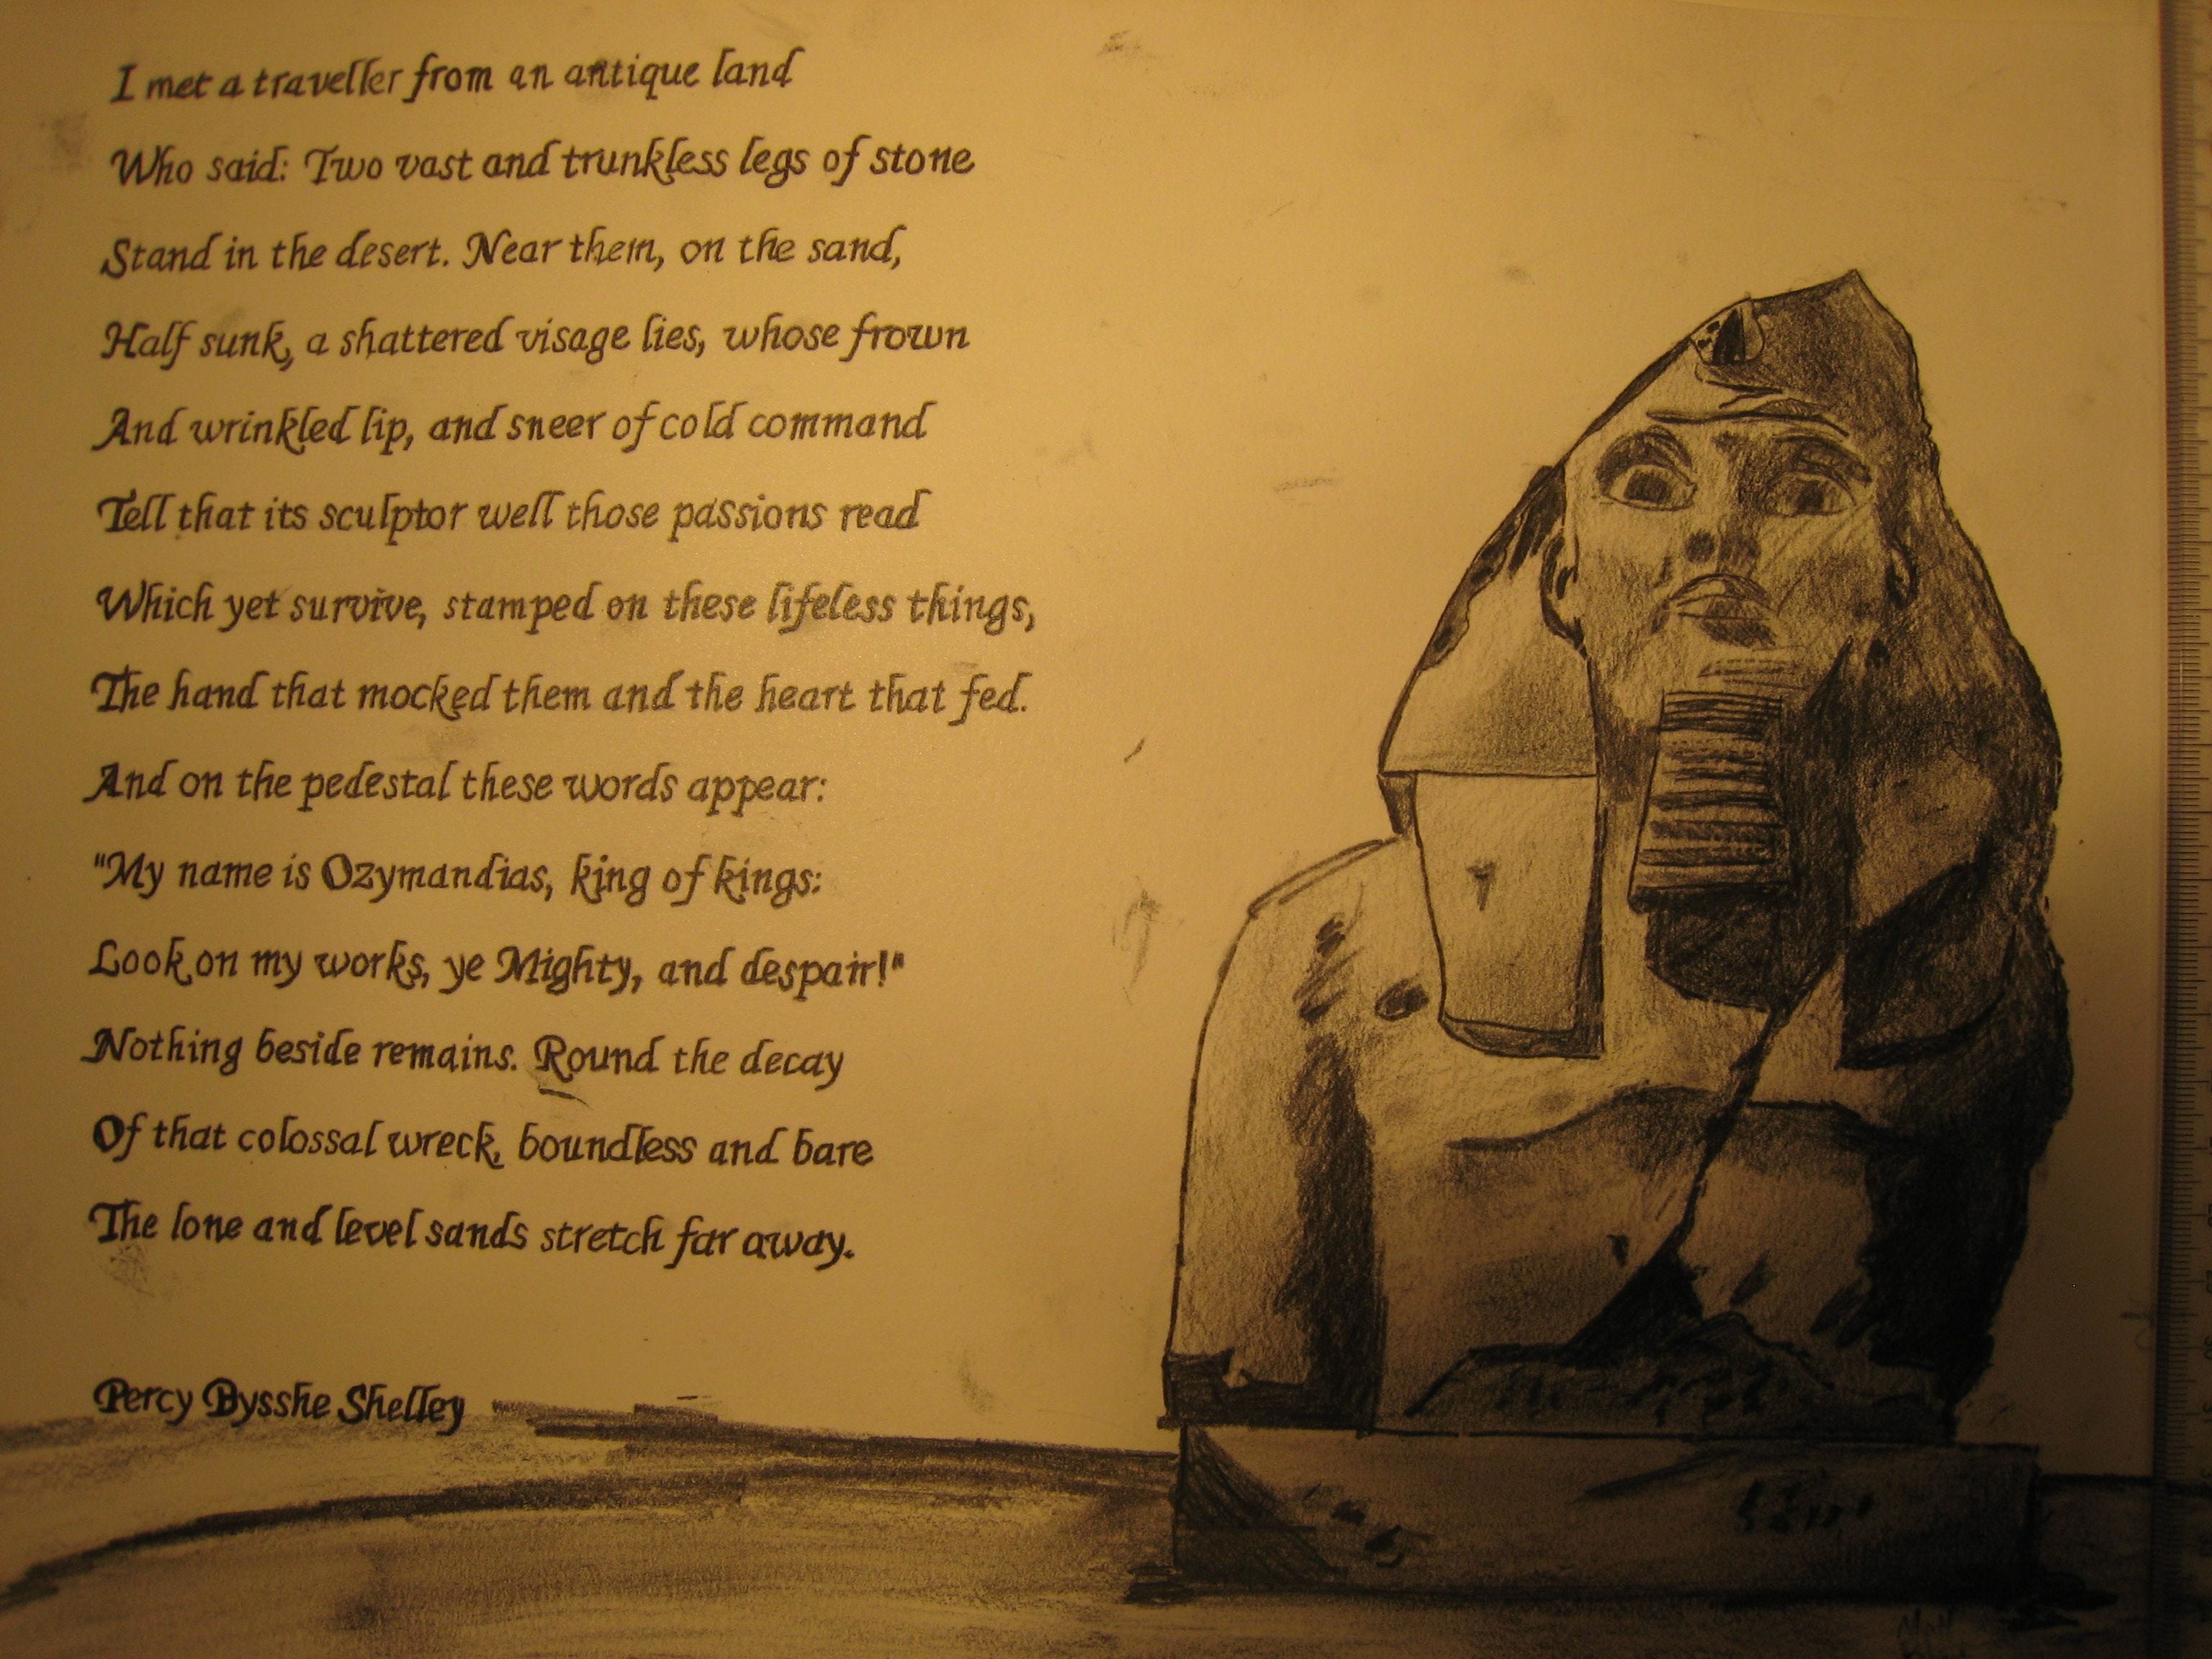 I met a traveller from an antique land
Who said: Two vast and trunkless legs of stone
Stand in the desert. Near them, on the sand,
Half sunk, a shattered visage lies, whose frown
And wrinkled lip, and sneer of cold command
Tell that its sculptor well those passions read
Which yet survive, stamped on these lifeless things,
The hand that mocked them and the heart that fed.
And on the pedestal these words appear:
"My name is Ozymandias, king of kings:
Look on my works, ye Mighty, and despair!"
Nothing beside remains. Round the decay
Of that colossal wreck, boundless and bare
The lone and level sands stretch far away.
Percy Bysshe Shelley